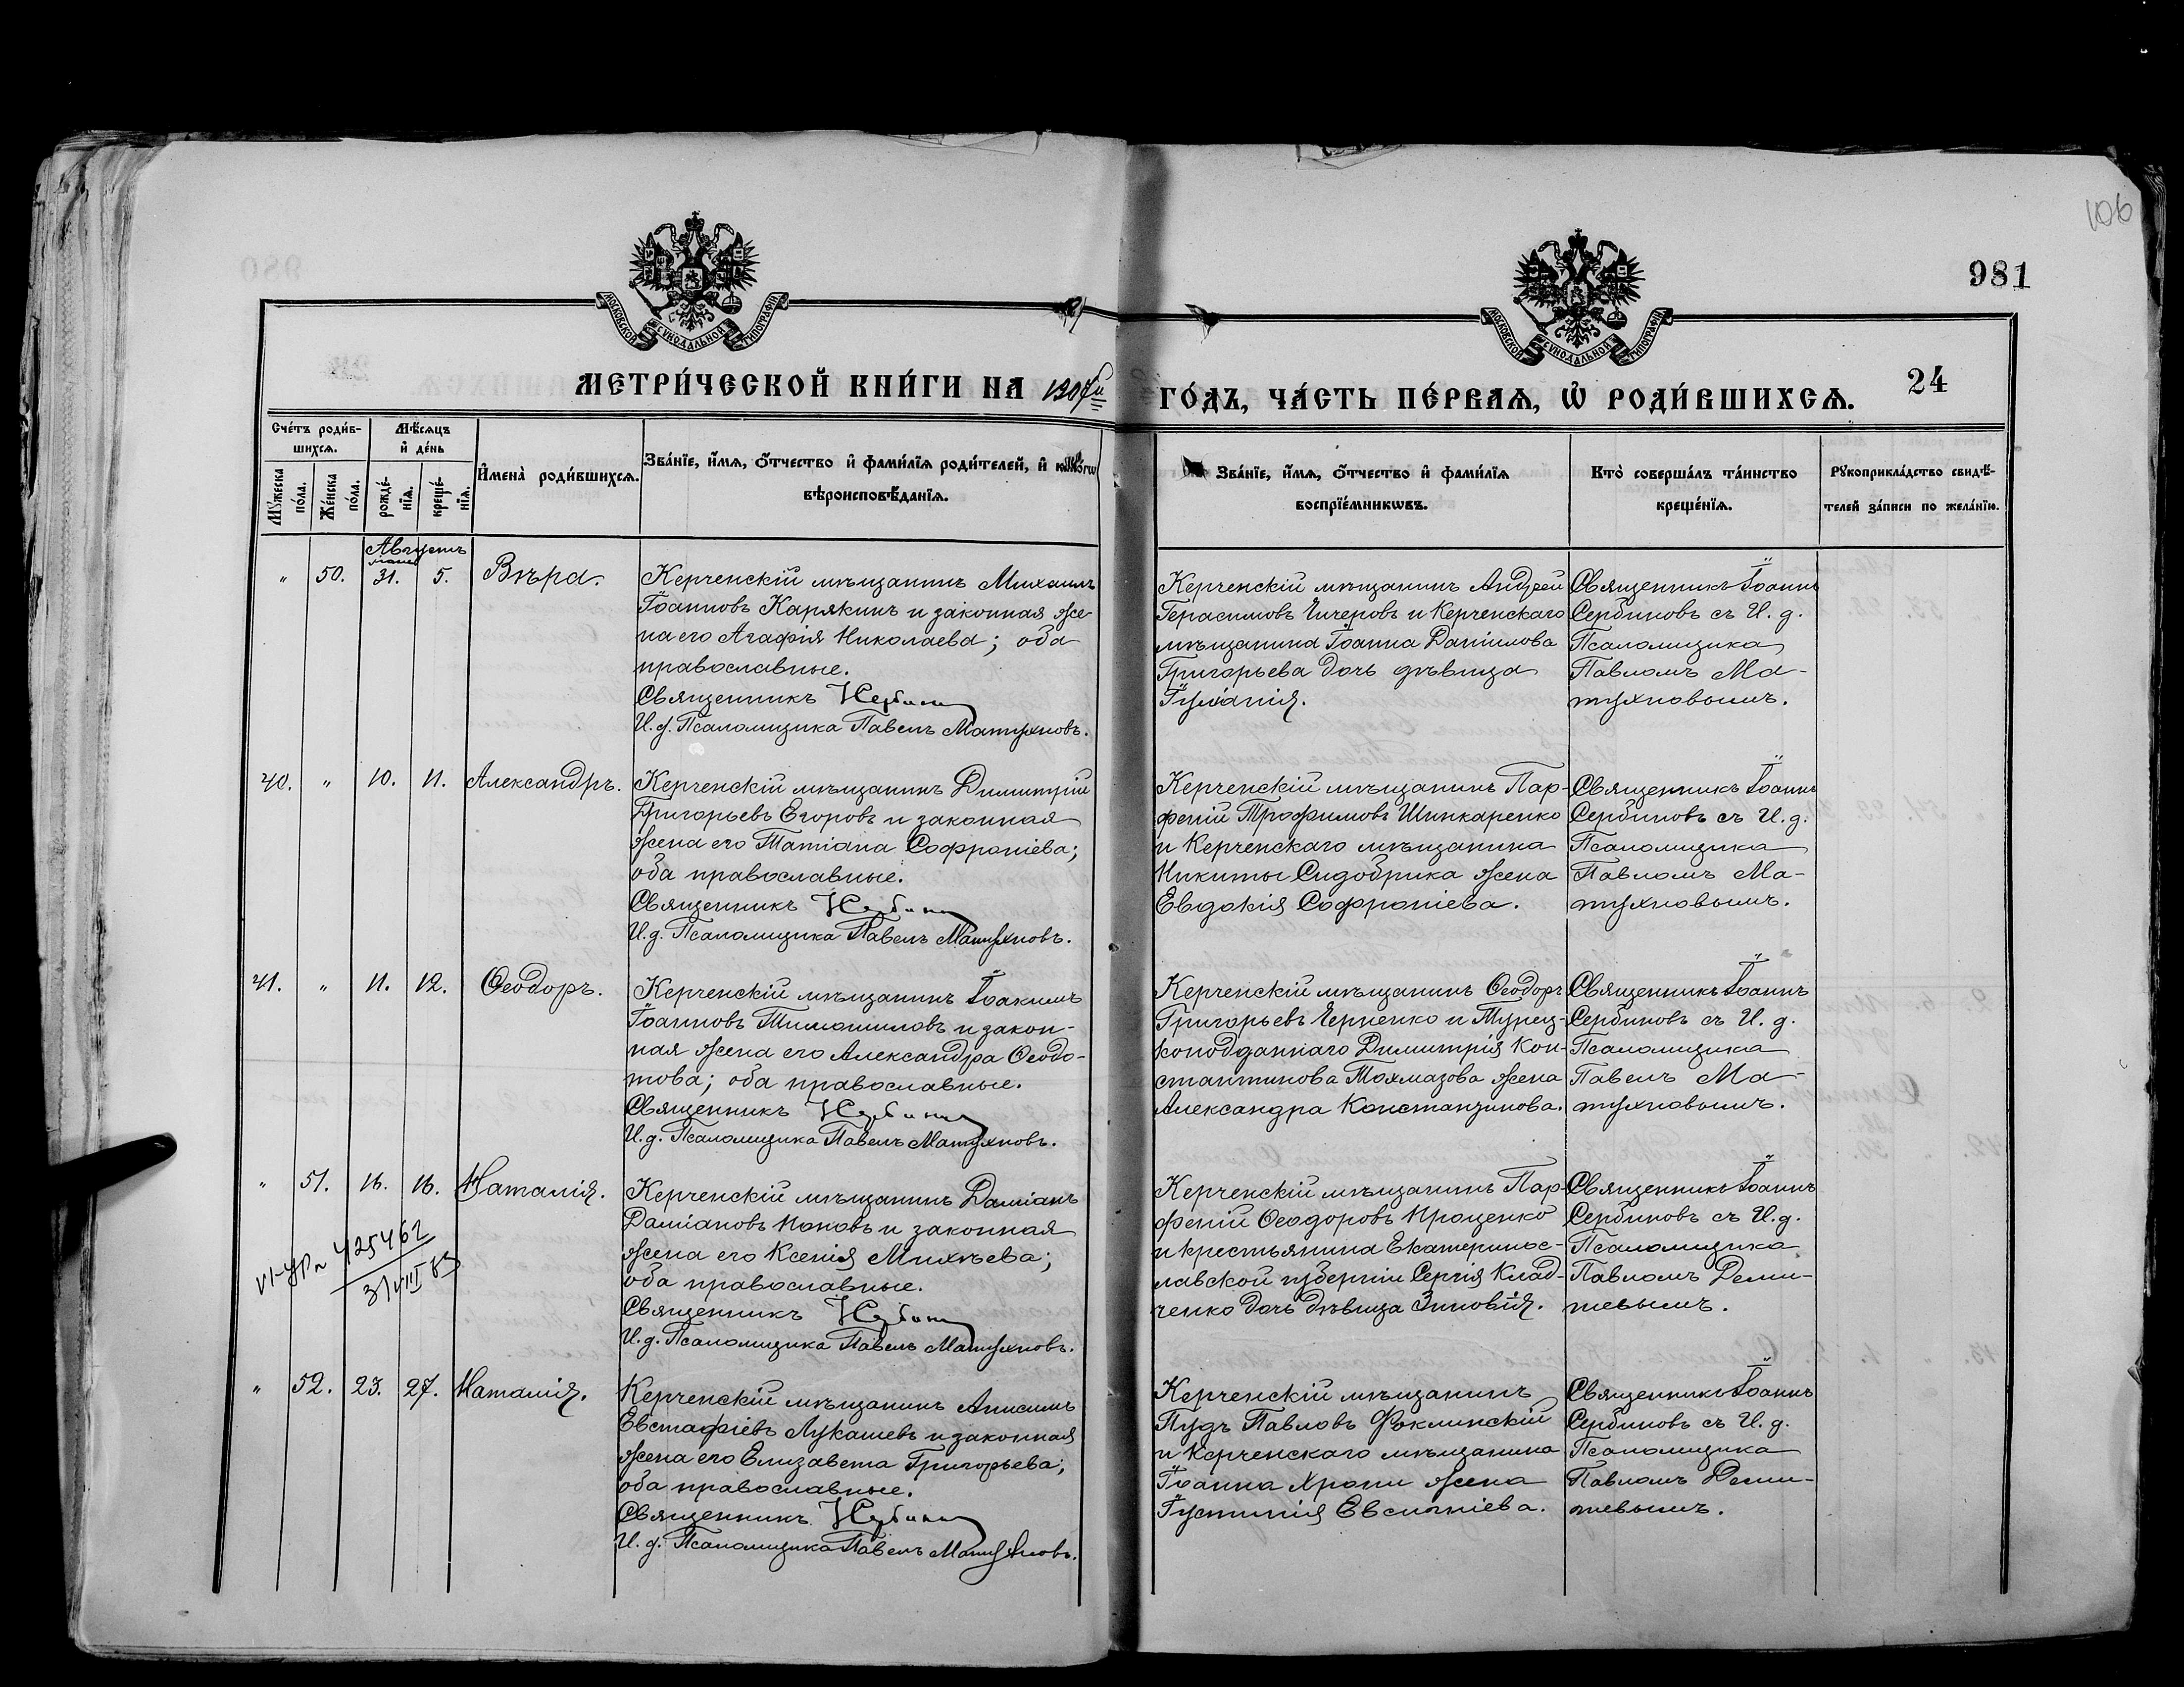 106
981
МОСКОВСКОЙ СѴНОДАЛЬНОЙ ТИПОГРАФІИ
МОСКОВСКОЙ СѴНОДАЛЬНОЙ ТИПОГРАФІИ
МЕТРИ́ЧЕСКОЙ КНИ́ГИ НА 1907й
ГО́ДЪ, ЧА́СТЬ ПЕ́РВАѦ, Ѡ҆ РОДИ́ВШИХСѦ.
24
Сче́тъ роди́в-
шихсѧ.
Мѣ́сѧцъ
и҆ де́нь
Мꙋ́жеска по́ла.
Же́нска по́ла.
рожде́-
нїѧ.
креще́-
нїѧ.
И҆мена̀ роди́вшихсѧ.
Зва́нїе, и҆́мѧ, ѻ҆́тчество и҆ фами́лїѧ роди́телей, и҆ како́гѡ
вѣроисповѣ́данїѧ.
Зва́нїе, и҆́мѧ, ѻ҆́тчество и҆ фами́лїѧ
воспрїе́мникѡвъ.
Кто̀ соверша́лъ та́инство
креще́нїѧ.
Рꙋкоприкла́дство свидѣ́-
телей за́писи по жела́нїю.
Августъ
" 50. 31. 5. Вѣра.
Керченскій мѣщанинъ Михаилъ
Іоанновъ Карякинъ и законная же-
на его Агафія Николаева; оба
православные.
Священникъ Сербинов
И. д. Псаломщика Павелъ Матухновъ.
Керченскій мѣщанинъ Андрей
Герасимовъ Гичеровъ и Керченскаго
мѣщанина Іоанна Даніилова
Григорьева дочь дѣвица
Іуліанія.
Священникъ Іоаннъ
Сербиновъ съ И. д.
Псаломщика
Павломъ Ма-
тухновымъ.
40. " 10. 11. Александръ.
Керченскій мѣщанинъ Димитрій
Григорьевъ Егоровъ и законная
жена его Татіана Софроніева;
оба православные.
Священникъ Сербинов
И. д. Псаломщика Павелъ Матухновъ.
Керченскій мѣщанинъ Пар-
феній Трофимовъ Шинкаренко
и Керченскаго мѣщанина
Никиты Сидобрика жена
Евдокія Софроніева.
Священникъ Іоаннъ
Сербиновъ съ И. д.
Псаломщика
Павломъ Ма-
тухновымъ.
41. " 11. 12. Ѳеодоръ.
Керченскій мѣщанинъ Іоакимъ
Іоанновъ Тимошиловъ и закон-
ная жена его Александра Ѳеодо-
това; оба православные.
Священникъ Сербинов
И. д. Псаломщика Павелъ Матухновъ.
Керченскій мѣщанинъ Ѳеодоръ
Григорьевъ Черненко и Турец-
коподданнаго Димитрія Кон-
стантинова Тохмазова жена
Александра Константинова.
Священникъ Іоаннъ
Сербиновъ съ И. д.
Псаломщика
Павелъ Ма-
тухновымъ.
" 51. 16. 16. Наталія.
Керченскій мѣщанинъ Даміанъ
Даміановъ Поповъ и законная
жена его Ксенія Михѣева;
оба православные.
Священникъ Сербинов
И. д. Псаломщика Павелъ Матухновъ.
VI-УР № 425462
31/VIII 83
Керченскій мѣщанинъ Пар-
феній Ѳеодоровъ Проценко
и крестьянина Екатеринос-
лавской губерніи Сергія Клад-
ченко дочь дѣвица Зиновія.
Священникъ Іоаннъ
Сербиновъ съ И. д.
Псаломщика
Павломъ Деми-
тевымъ.
" 52. 23. 27. Наталія.
Керченскій мѣщанинъ Анисимъ
Евстафіевъ Лукашевъ и законная
жена его Елизавета Григорьева;
оба православные.
Священникъ Сербинов
И. д. Псаломщика Павелъ Матухновъ.
Керченскій мѣщанинъ
Пудъ Павловъ Фоклинскій
и Керченскаго мѣщанина
Іоанна Хропи жена
Іустинія Евсигніева.
Священникъ Іоаннъ
Сербиновъ съ И. д.
Псаломщика
Павломъ Деми-
тевымъ.